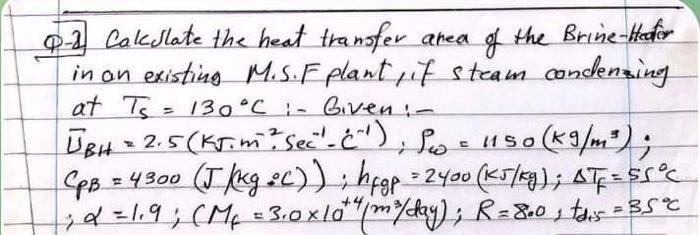 Q-2] Calculate the heat transfer area of the Brine-Heater
in an existing M.S.F plant, if steam condensing
at Ts = 130°C :- Given :-
U̅BH = 2.5 (KJ.m⁻².Sec⁻¹.C°⁻¹), ρω = 1150 (kg/m³);
CPB = 4300 (J/kg.°C)); hfgp = 2400 (KJ/kg); ΔTF = 55°C
; α = 1.9; (Mf = 3.0x10⁺⁴ (m³/day); R = 8.0, tdis = 35°C